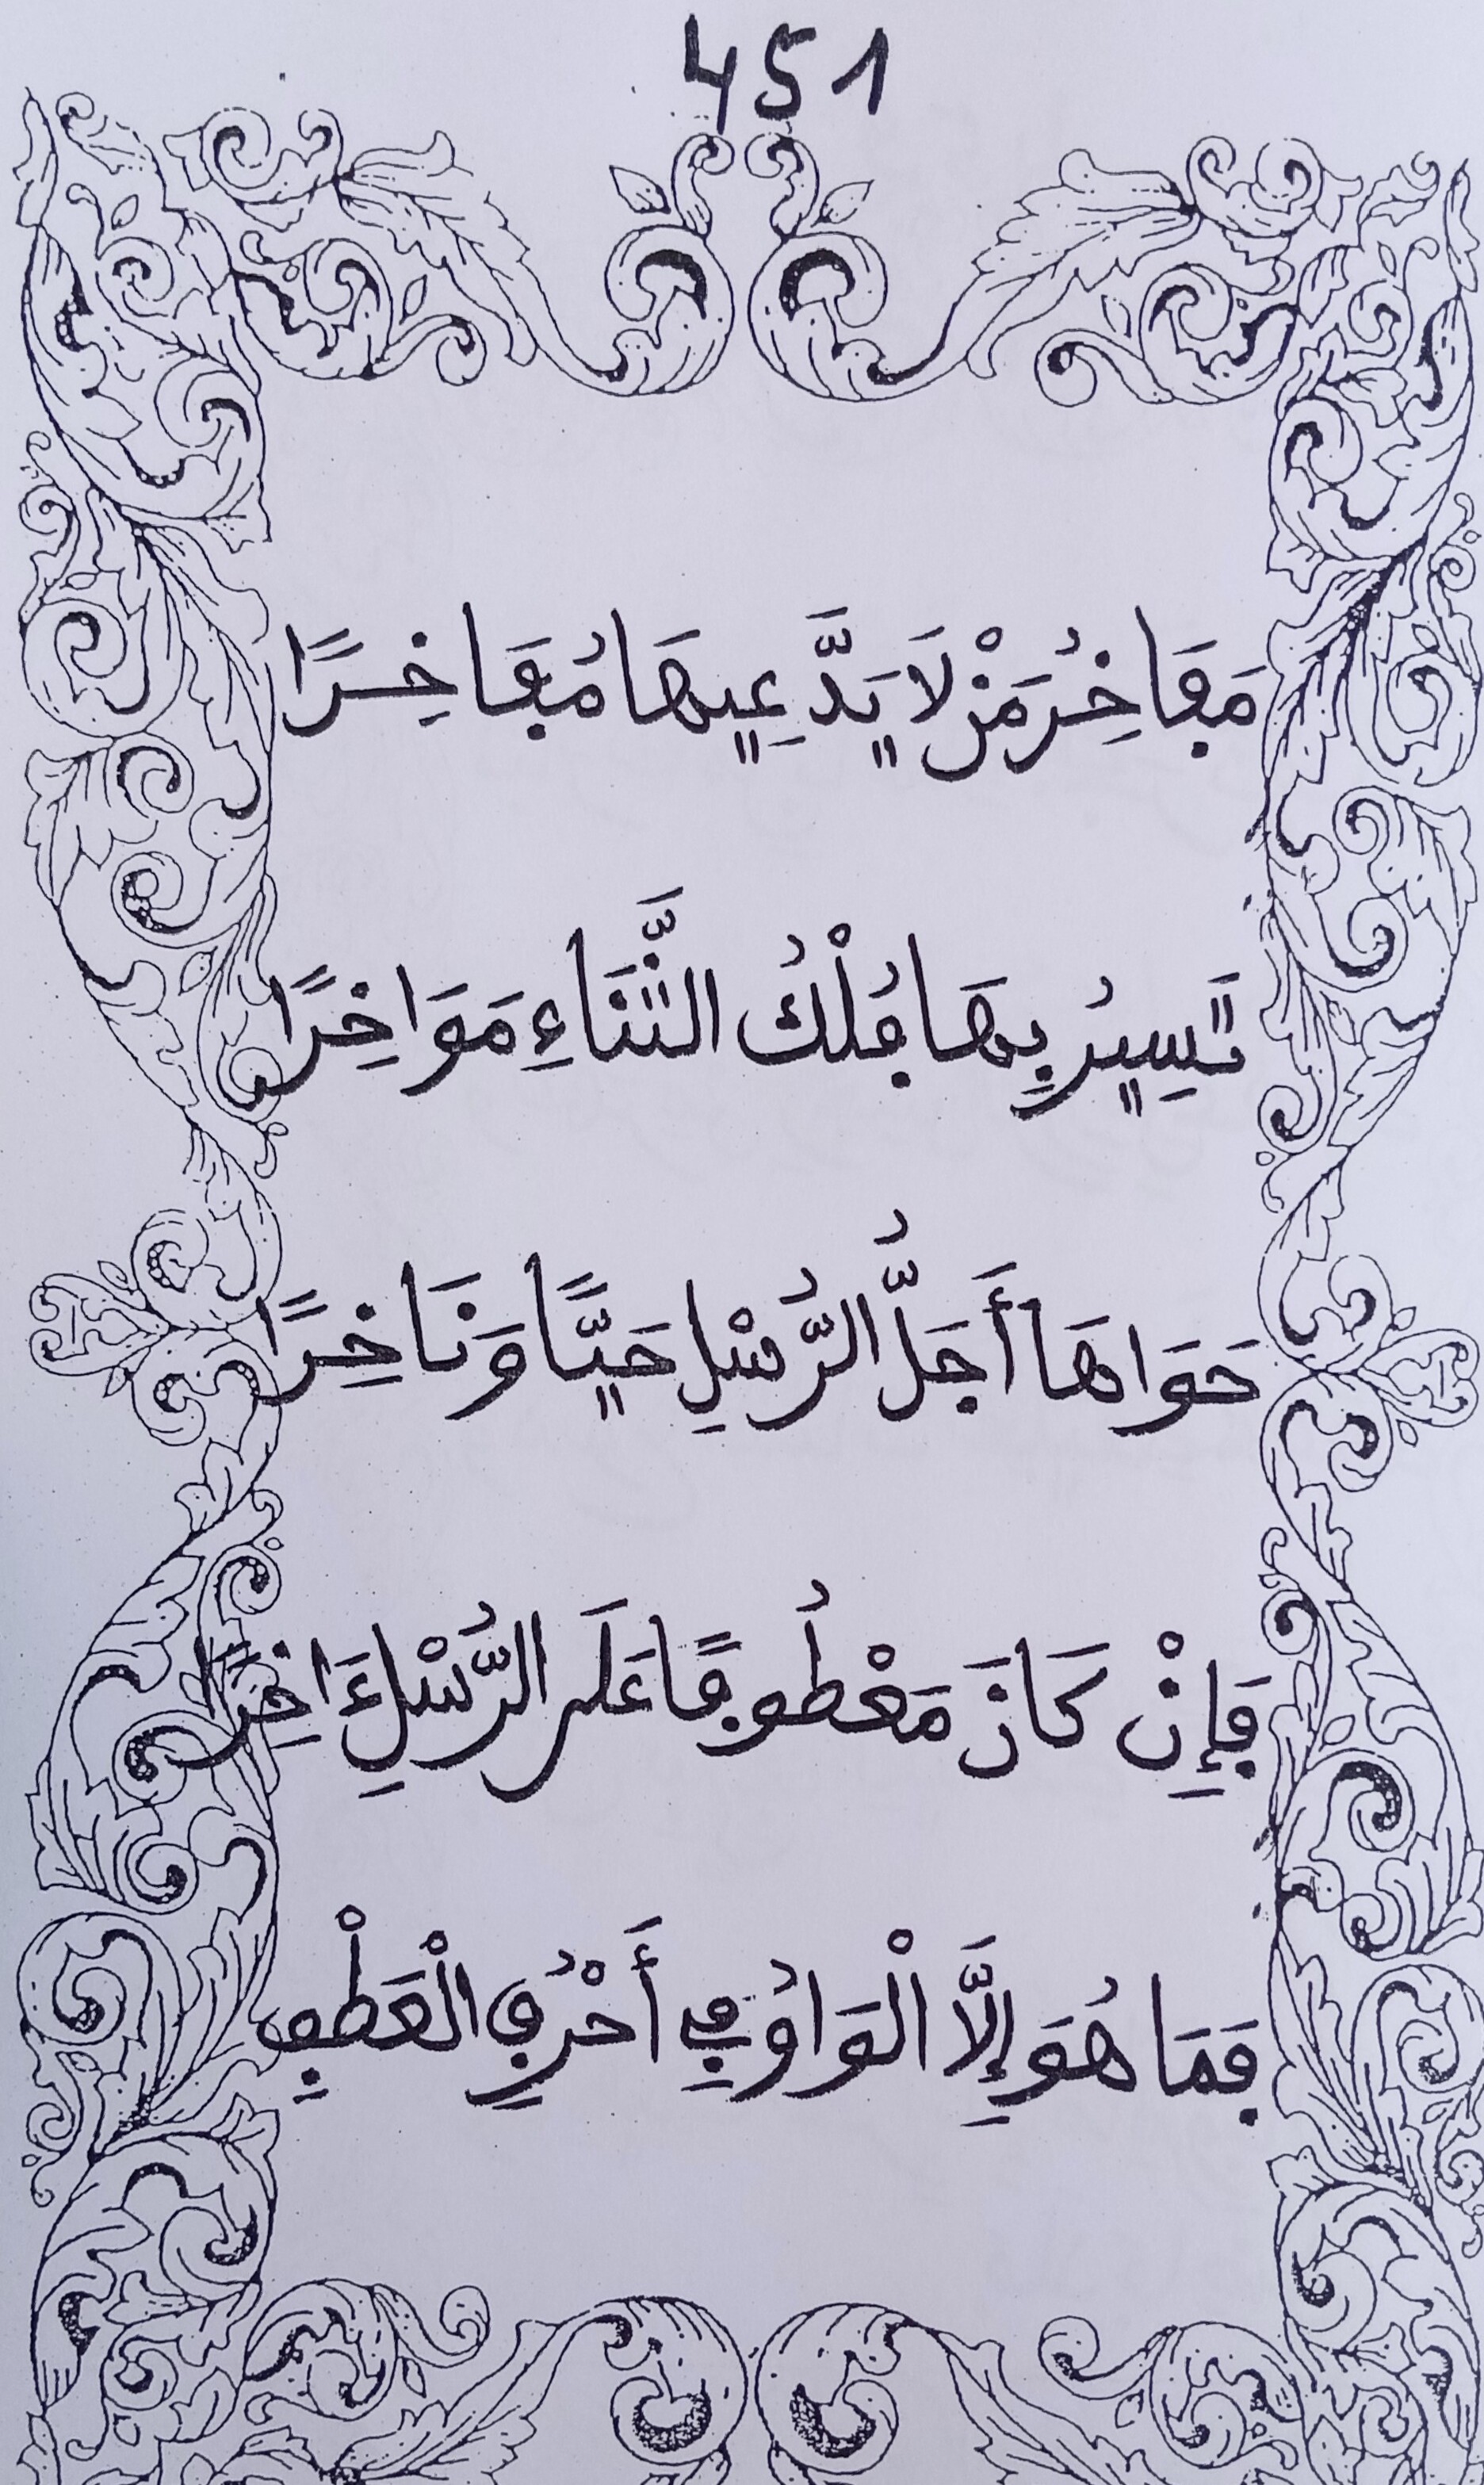 451
مَفَاخِرُ مَنْ لَا يَدَّعِيهَا مُفَاخِرًا
تَسِيرُ بِهَا فُلْكُ الثَّنَاءِ مَوَاخِرًا
حَوَاهَا أَجَلُّ الرُّسْلِ حَيًّا وَنَاخِرًا
فَإِنْ كَانَ مَعْطُوفًا عَلَى الرُّسْلِ ءَاخِرًا
فَمَا هُوَ إِلَّا الْوَاوُ فِي أَحْرُفِ الْعَطْفِ